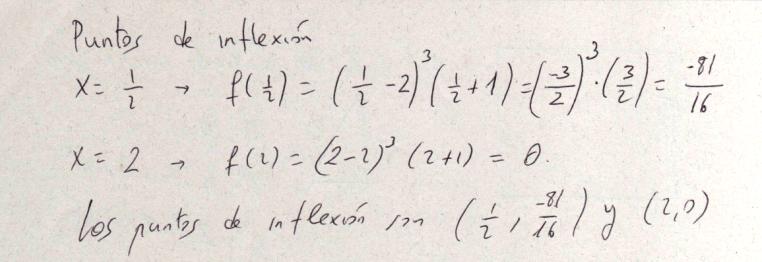 Puntos de inflexión
x = 1/2 → f(1/2) = (1/2 - 2)^3 (1/2 + 1) = (-3/2)^3 · (3/2) = -81/16
x = 2 → f(2) = (2-2)^3 (2+1) = 0.
Los puntos de inflexión son (1/2, -81/16) y (2,0)